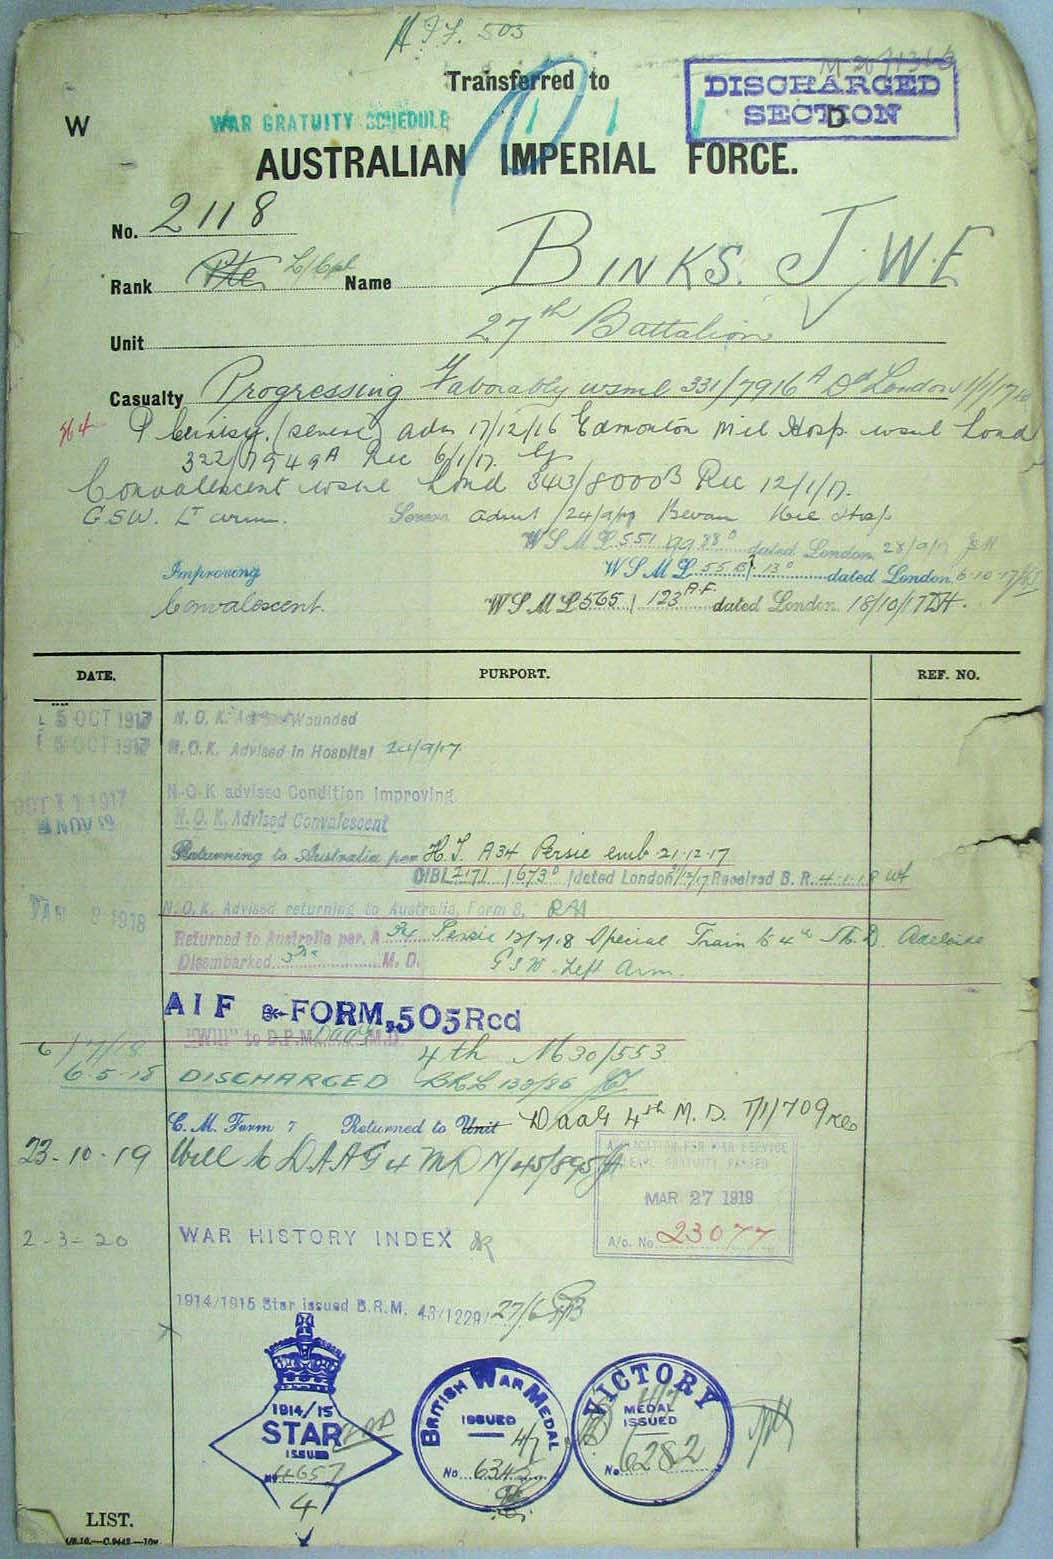 A.I.F. 505
Transferred to
DISCHARGED
SECTION
D
W
WAR GRATUITY SCHEDULE
AUSTRALIAN IMPERIAL FORCE.
No. 2118
Rank Pte L/Cpl Name BINKS. J.W.E
Unit 27th Battalion
Casualty Progressing Favorably wsml 331/7916A Dd London 1/1/17
Pleurisy (severe) adm 17/12/16 Edmonton Mil Hosp. wsml Lond
322/7949A Rec 6/1/17.
Convalescent wsml Lond 343/8000B Rec 12/1/17.
GSW. Lt arm. Severe admt 24/9/17 Bevan Mil Hosp
WSML 551 9988D dated London 28/9/17
Improving WSML 13D dated London 6-10-17
Convalescent. WSML 565/123 A.F. dated London 18/10/17
DATE. PURPORT. REF. NO.
5 OCT 1917 N.O.K. Wounded
5 OCT 1917 N.O.K. Advised in Hospital 24/9/17
OCT 11 1917 N.O.K advised Condition Improving
NOV N.O.K. Advised Convalescent
Returning to Australia per H.T. A34 Persic emb 21-12-17
OIBL 2171/673D dated London Received B.R. 4-1-18
JAN 1918 N.O.K. Advised returning to Australia, Form 8,
Returned to Australia per. Persic Special Train to 4th M.D. Adelaide
Disembarked 3rd M.D. GSW. Left Arm.
AIF FORM, 505 Rcd
"Will" to D.P.M. M.D.
4th M30/553
6-5-18 DISCHARGED BRL 138/86
C.M. Form 7 Returned to Unit DAAG 4th M.D. 7/1/709
23-10-19 Will to DAAG 4 MD N/45/895
APPLICATION FOR WAR SERVICE
LEAVE GRATUITY PASSED
MAR 27 1919
A/c. No. 23077
2-3-20 WAR HISTORY INDEX
1914/1915 Star issued B.R.M. 43/1229/27/6
1914/15
STAR
ISSUED
No 4657
4
BRITISH WAR MEDAL
ISSUED
4/7
No. 6342
VICTORY
MEDAL
ISSUED
4/7
No. 6282
LIST.